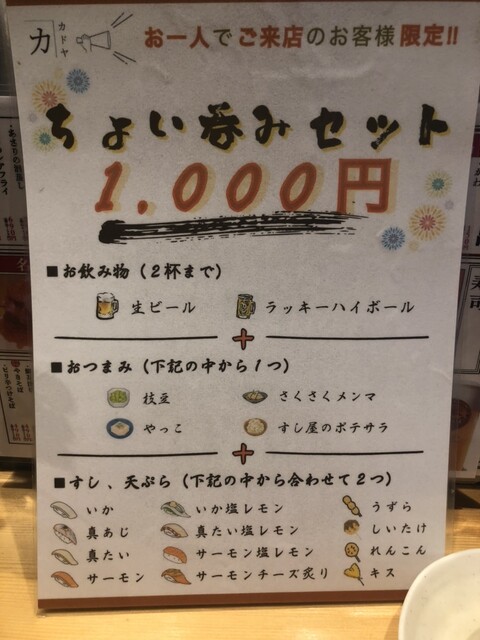 カ カドヤ
お一人でご来店のお客様限定!!
ちょい呑みセット
1,000円
■お飲み物（2杯まで）
生ビール ラッキーハイボール
+
■おつまみ（下記の中から1つ）
枝豆 さくさくメンマ
やっこ すし屋のポテサラ
+
■すし、天ぷら（下記の中から合わせて2つ）
いか いか塩レモン うずら
真あじ 真たい塩レモン しいたけ
真たい サーモン塩レモン れんこん
サーモン サーモンチーズ炙り キス